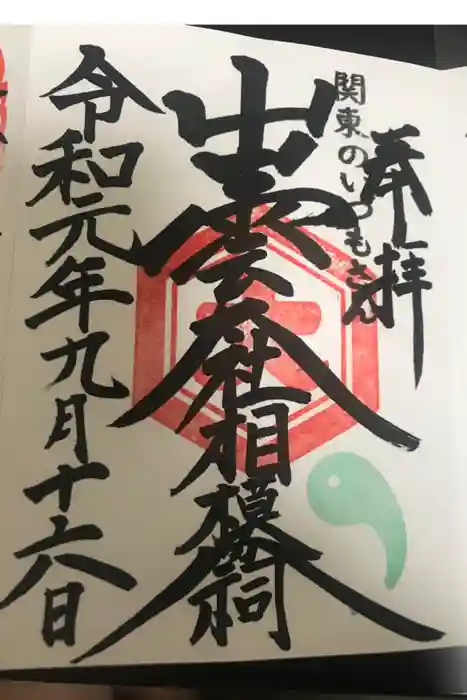 奉拝
関東のいづもさん
出雲大社相模分祠
令和元年九月十六日